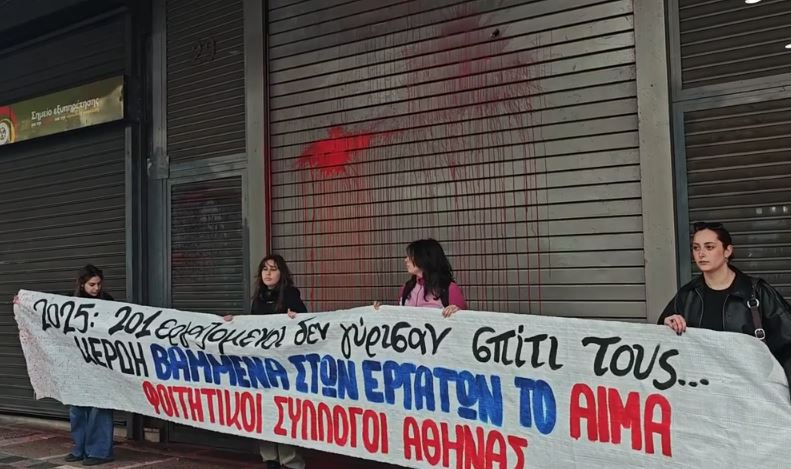 29
Σημείο εξυπηρέτησης
2025: 201 εργαζομενοι δεν γύρισαν σπίτι τους...
ΚΕΡΔΗ ΒΑΜΜΕΝΑ ΣΤΩΝ ΕΡΓΑΤΩΝ ΤΟ ΑΙΜΑ
ΦΟΙΤΗΤΙΚΟΙ ΣΥΛΛΟΓΟΙ ΑΘΗΝΑΣ